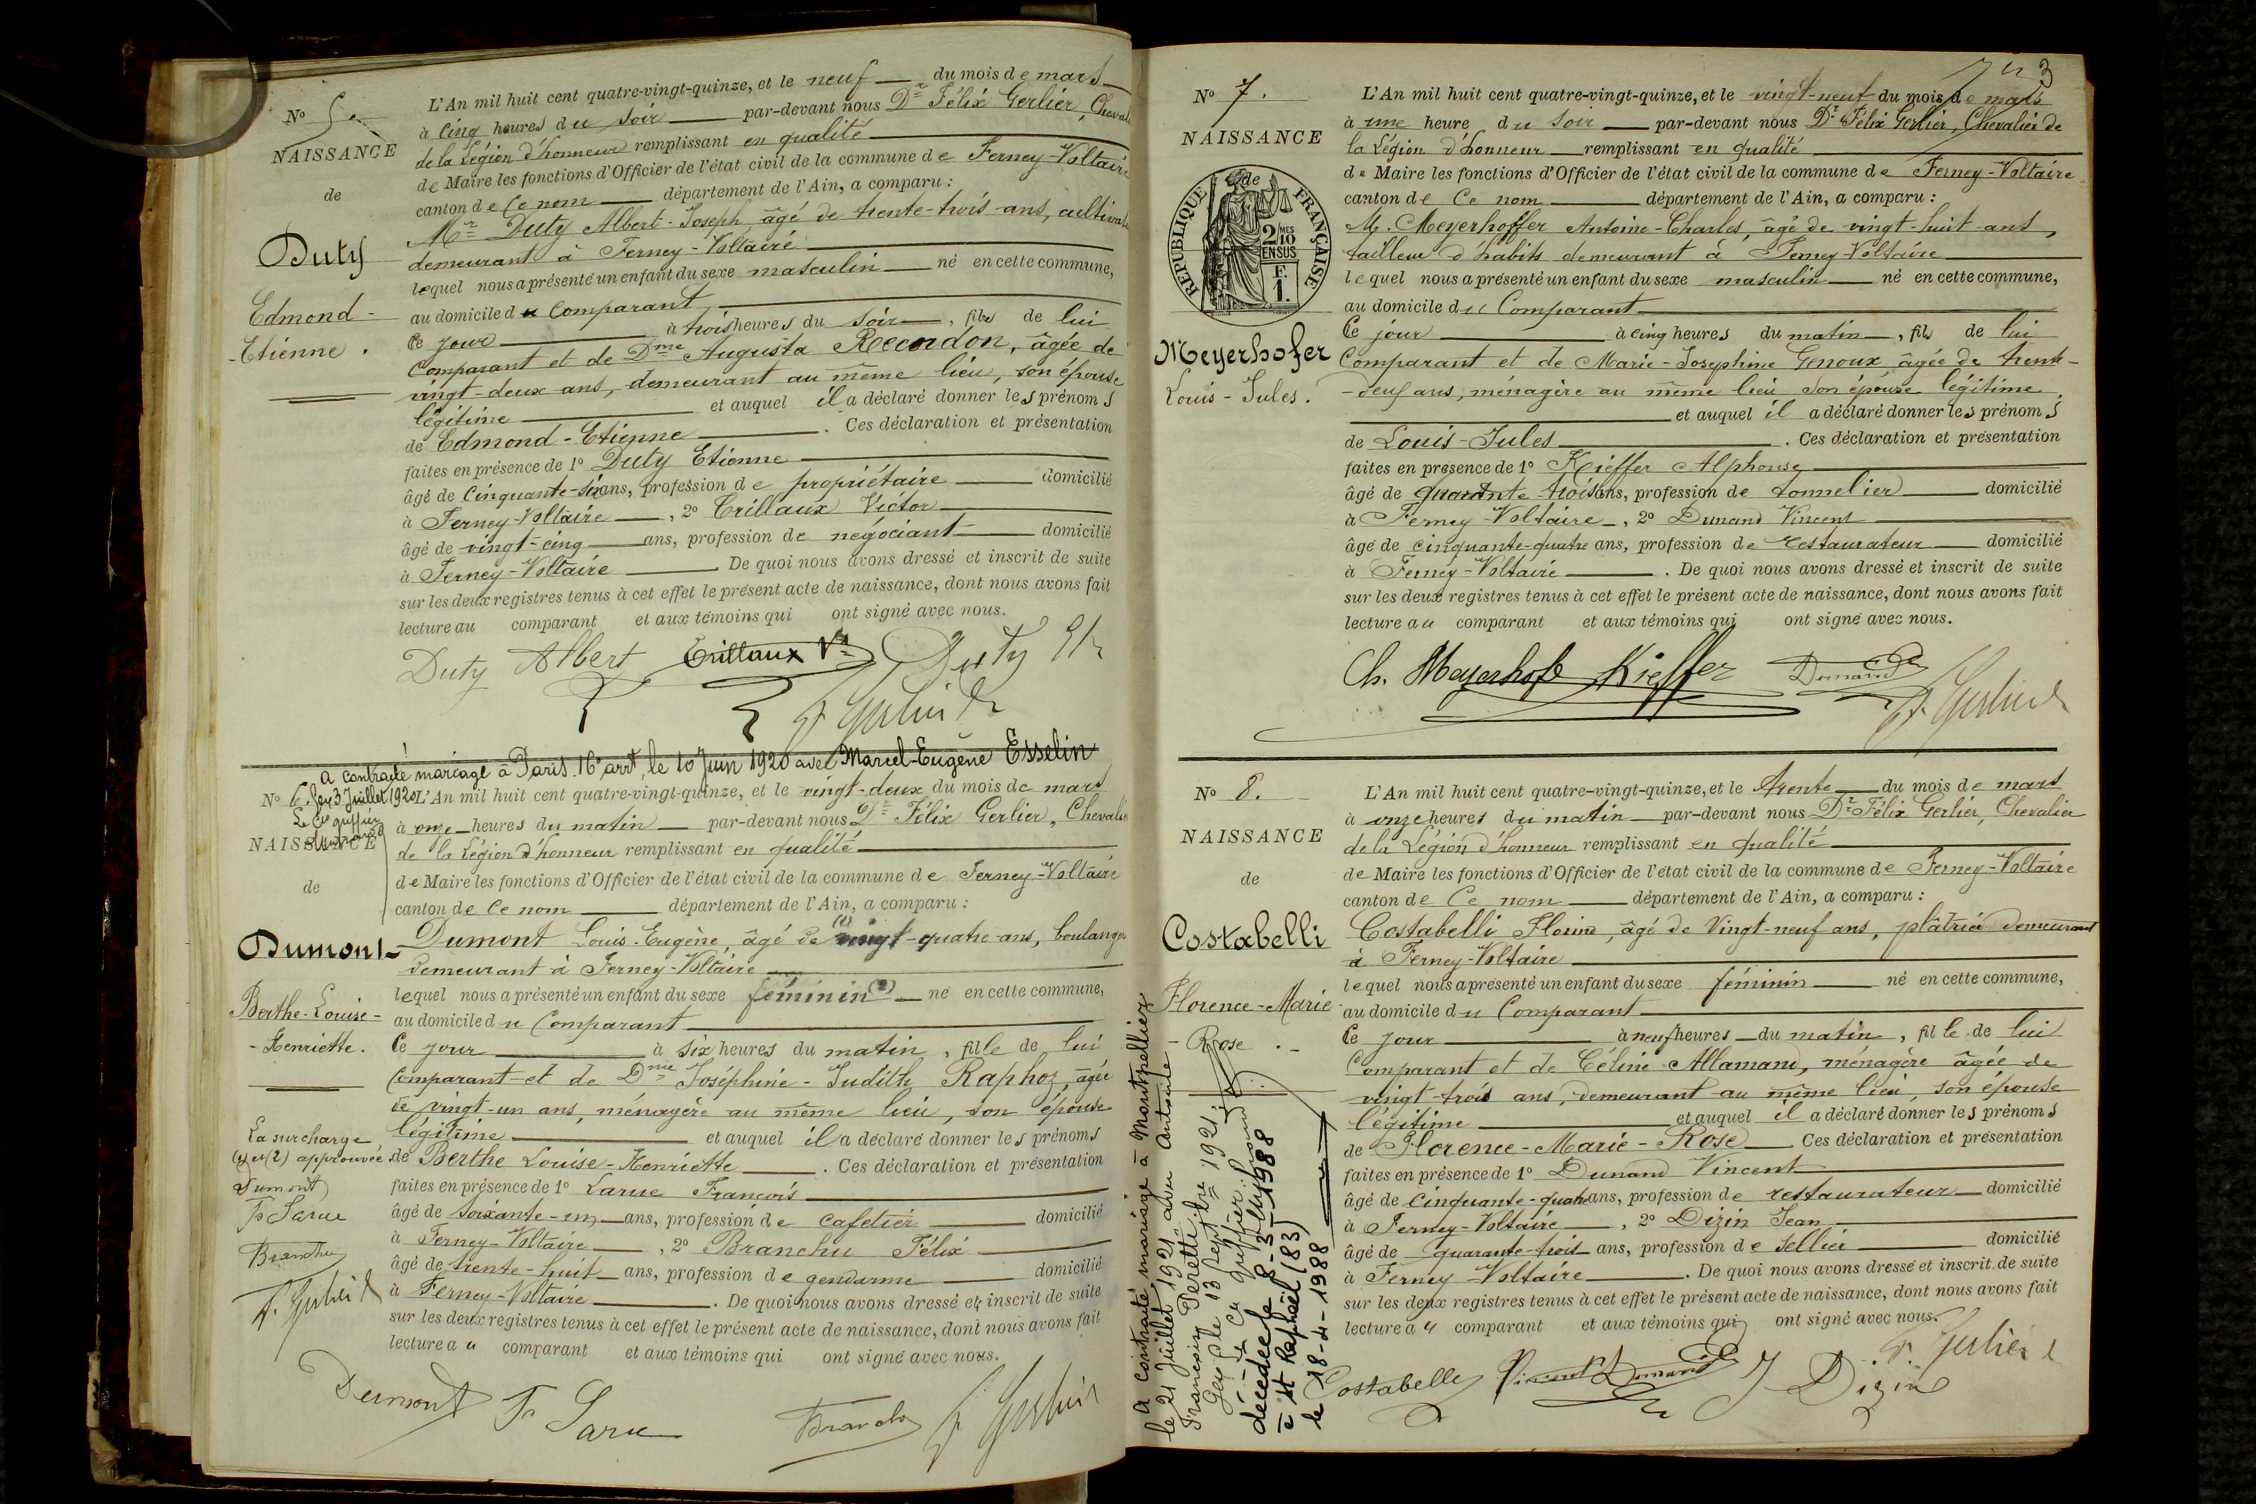 No 5.
NAISSANCE
de
Duty
Edmond-
-Etienne.
L'An mil huit cent quatre-vingt-quinze, et le neuf du mois de mars
à cinq heures du soir par-devant nous Dr Félix Gerlier, Cheval
de la Légion d'honneur remplissant en qualité
de Maire les fonctions d'Officier de l'état civil de la commune de Ferney-Voltaire
canton de Ce nom département de l'Ain, a comparu :
Mr Duty Albert-Joseph, âgé de trente-trois ans, cultivat
demeurant à Ferney-Voltaire
lequel nous a présenté un enfant du sexe masculin né en cette commune,
au domicile du Comparant
Ce jour à trois heures du soir, fils de lui
Comparant et de Dme Augusta Recordon, âgée de
vingt-deux ans, demeurant au même lieu, son épouse
légitime et auquel il a déclaré donner les prénoms
de Edmond-Etienne. Ces déclaration et présentation
faites en présence de 1º Duty Etienne
âgé de Cinquante-six ans, profession de propriétaire domicilié
à Ferney-Voltaire, 2º Trillaux Victor
âgé de vingt-cinq ans, profession de négociant domicilié
à Ferney-Voltaire. De quoi nous avons dressé et inscrit de suite
sur les deux registres tenus à cet effet le présent acte de naissance, dont nous avons fait
lecture au comparant et aux témoins qui ont signé avec nous.
Duty Albert Trillaux Vr Duty Et
F. Gerlier
a contracté mariage à Paris 16e arrt, le 10 Juin 1920 avec Marcel-Eugène Esselin
No 6. Gex 3 Juillet 1920
Le Cis greffier
NAISSANCE
de
Dumont-
Berthe-Louise-
-Henriette.
La surcharge
(1) et (2) approuvée
Dumont
Fs Larue
Branchu
F. Gerlier
L'An mil huit cent quatre-vingt-quinze, et le vingt-deux du mois de mars
à onze heures du matin par-devant nous Dr Félix Gerlier, Chevali
de la Légion d'honneur remplissant en qualité
de Maire les fonctions d'Officier de l'état civil de la commune de Ferney-Voltaire
canton de Ce nom département de l'Ain, a comparu :
Dumont Louis-Eugène, âgé de (1) vingt-quatre ans, boulanger
demeurant à Ferney-Voltaire
lequel nous a présenté un enfant du sexe féminin (2) né en cette commune,
au domicile du Comparant
Ce jour à six heures du matin, fille de lui
Comparant et de Dme Joséphine-Judith Raphoz, âgée
de vingt-un ans, ménagère au même lieu, son épouse
légitime et auquel il a déclaré donner les prénoms
de Berthe Louise-Henriette. Ces déclaration et présentation
faites en présence de 1º Larue François
âgé de soixante-un ans, profession de cafetier domicilié
à Ferney-Voltaire, 2º Branchu Félix
âgé de trente-huit ans, profession de gendarme domicilié
à Ferney-Voltaire. De quoi nous avons dressé et inscrit de suite
sur les deux registres tenus à cet effet le présent acte de naissance, dont nous avons fait
lecture au comparant et aux témoins qui ont signé avec nous.
Dumont Fs Larue Branchu F. Gerlier
3
No 7.
NAISSANCE
de
RÉPUBLIQUE FRANÇAISE
2/10MES
EN SUS
F.
1.
Meyerhofer
Louis-Jules.
L'An mil huit cent quatre-vingt-quinze, et le vingt-neuf du mois de mars
à une heure du soir par-devant nous Dr Félix Gerlier, Chevalier de
la Légion d'honneur remplissant en qualité
de Maire les fonctions d'Officier de l'état civil de la commune de Ferney-Voltaire
canton de Ce nom département de l'Ain, a comparu :
M. Meyerhoffer Antoine-Charles, âgé de vingt-huit ans,
tailleur d'habits demeurant à Ferney-Voltaire
lequel nous a présenté un enfant du sexe masculin né en cette commune,
au domicile du Comparant
Ce jour à cinq heures du matin, fils de lui
Comparant et de Marie-Josephine Genoux âgée de trente-
-deux ans, ménagère au même lieu son épouse légitime
et auquel il a déclaré donner les prénoms
de Louis-Jules. Ces déclaration et présentation
faites en présence de 1º Kieffer Alphonse
âgé de quarante-trois ans, profession de tonnelier domicilié
à Ferney-Voltaire, 2º Dunand Vincent
âgé de cinquante-quatre ans, profession de restaurateur domicilié
à Ferney-Voltaire. De quoi nous avons dressé et inscrit de suite
sur les deux registres tenus à cet effet le présent acte de naissance, dont nous avons fait
lecture au comparant et aux témoins qui ont signé avec nous.
Ch. Meyerhofe Kieffer Dunand F. Gerlier
No 8.
NAISSANCE
de
Costabelli
Florence-Marie-
-Rose.
A contracté mariage à Montpellier
le 21 Juillet 1921 avec Antoine
François Peretti
Gex le 13 septbre 1921
Le Cis greffier
décédée le 8-3-1988
à St Raphaël (83)
le 18-4-1988
L'An mil huit cent quatre-vingt-quinze, et le trente du mois de mars
à onze heures du matin par-devant nous Dr Félix Gerlier, Chevalier
de la Légion d'honneur remplissant en qualité
de Maire les fonctions d'Officier de l'état civil de la commune de Ferney-Voltaire
canton de Ce nom département de l'Ain, a comparu :
Costabelli Florino, âgé de Vingt-neuf ans, plâtrier demeurant
à Ferney-Voltaire
lequel nous a présenté un enfant du sexe féminin né en cette commune,
au domicile du Comparant
Ce jour à neuf heures du matin, fille de lui
Comparant et de Céline Allamand, ménagère âgée de
vingt-trois ans, demeurant au même lieu, son épouse
légitime et auquel il a déclaré donner les prénoms
de Florence-Marie-Rose. Ces déclaration et présentation
faites en présence de 1º Dunand Vincent
âgé de Cinquante-quatre ans, profession de restaurateur domicilié
à Ferney-Voltaire, 2º Dizin Jean
âgé de quarante-trois ans, profession de sellier domicilié
à Ferney-Voltaire. De quoi nous avons dressé et inscrit de suite
sur les deux registres tenus à cet effet le présent acte de naissance, dont nous avons fait
lecture au comparant et aux témoins qui ont signé avec nous.
Costabelle Vincent Dunand J Dizin F. Gerlier